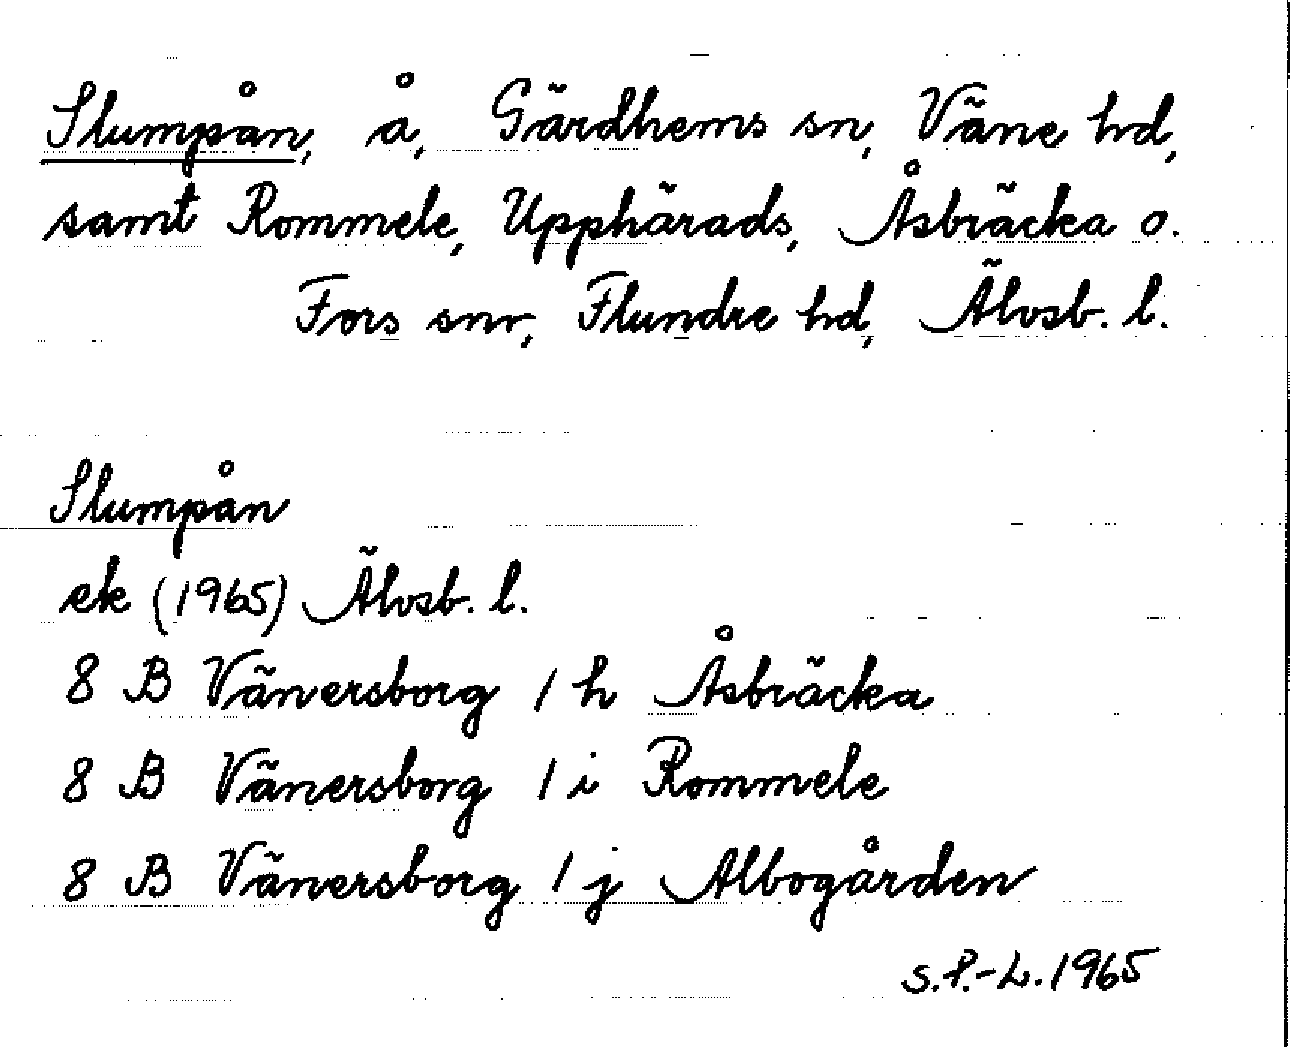 Slumpån, å, Gärdhems sn, Väne hd,
samt Rommele, Upphärads, Åsbräcka o.
Fors snr, Flundre hd, Älvsb. l.
Slumpån
ek (1965) Älvsb. l.
8 B Vänersborg 1 h Åsbräcka
8 B Vänersborg 1 i Rommele
8 B Vänersborg 1 j Albogården
S.P.-L. 1965